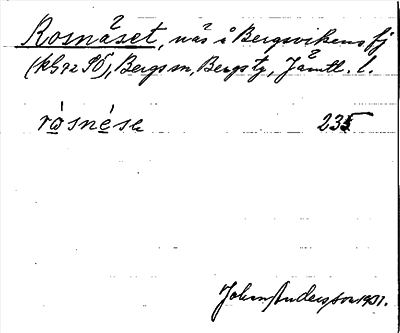 Rosnäset, näs i Bergsvikens fj
(kbg 72 SO), Bergs sn, Bergs tg, Jämtl. l.
rósnése 235
John Andersson 1931.